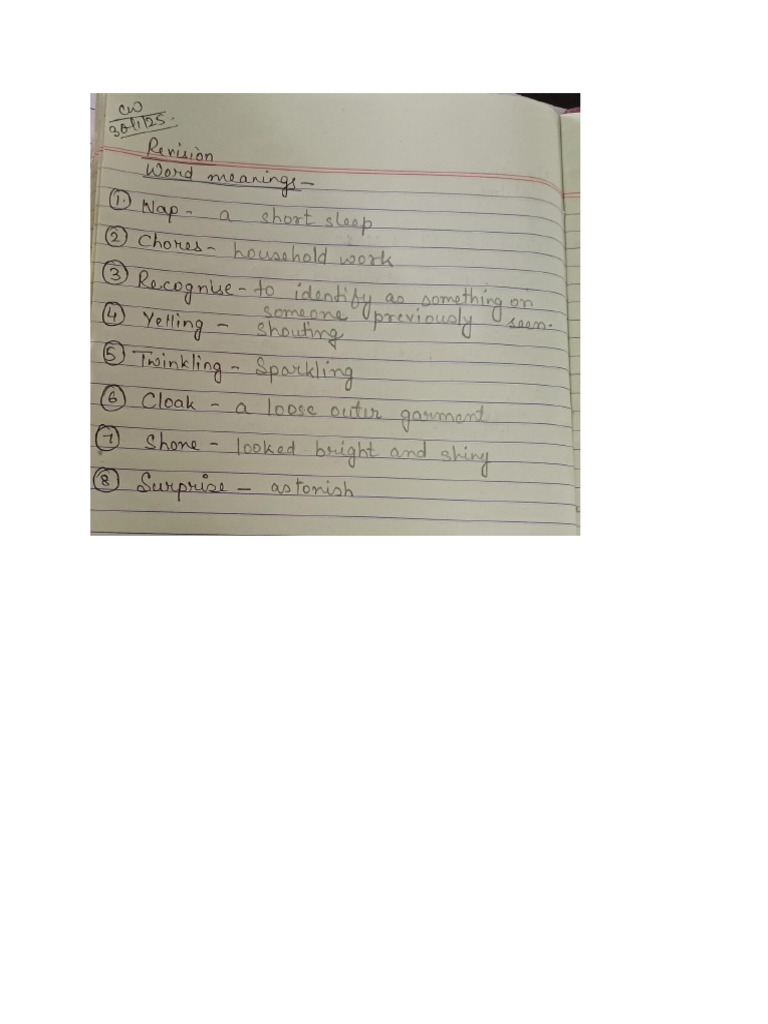 CW
30/1/25.
Revision
Word meanings -
① Nap - a short sleep
② Chores - household work
③ Recognise - to identify as something or
someone previously seen.
④ Yelling - shouting
⑤ Twinkling - Sparkling
⑥ Cloak - a loose outer garment
⑦ Shone - looked bright and shiny
⑧ Surprise - astonish